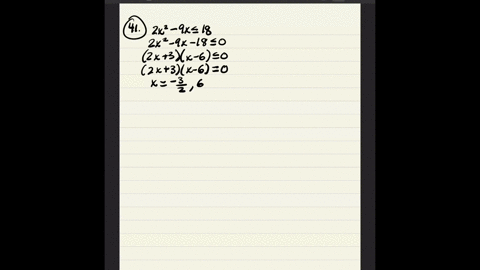 41. 2x² - 9x ≤ 18
2x² - 9x - 18 ≤ 0
(2x+3)(x-6) ≤ 0
(2x+3)(x-6) = 0
x = -3/2, 6